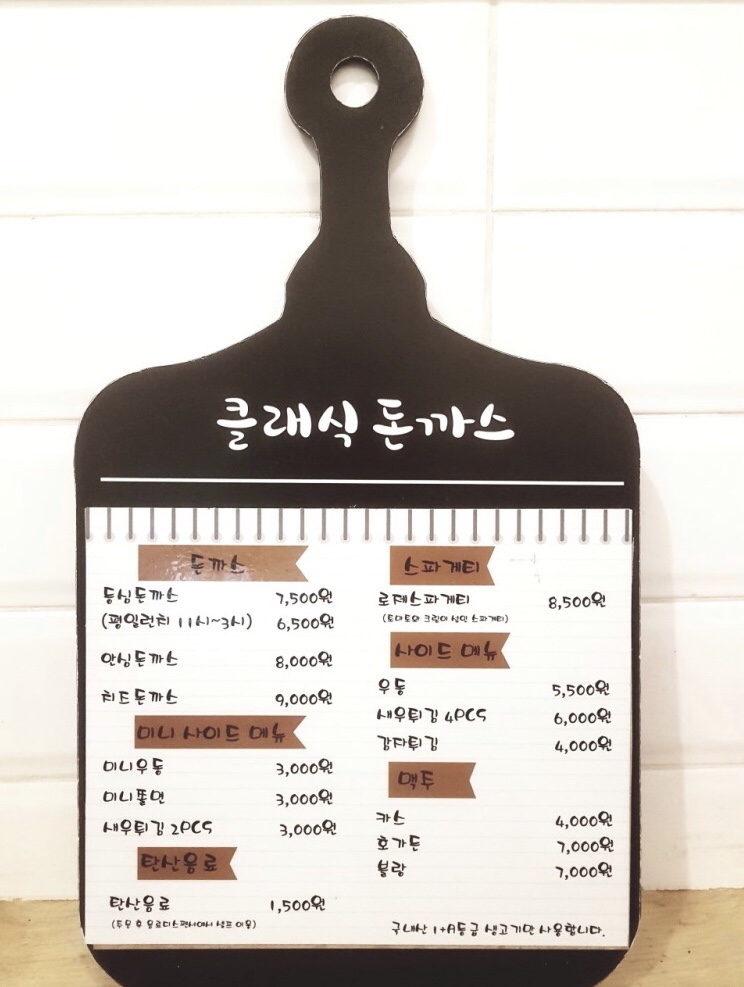 클래식 돈까스
돈까스
등심돈까스 7,500원
(평일런치 11시~3시) 6,500원
안심돈까스 8,000원
치즈돈까스 9,000원
미니 사이드 메뉴
미니우동 3,000원
미니쫄면 3,000원
새우튀김 2PCS 3,000원
탄산음료
탄산음료 1,500원
(주문 후 음료디스펜서에서 셀프 이용)
스파게티
로제스파게티 8,500원
(토마토와 크림이 섞인 스파게티)
사이드 메뉴
우동 5,500원
새우튀김 4PCS 6,000원
감자튀김 4,000원
맥주
카스 4,000원
호가든 7,000원
블랑 7,000원
국내산 1+A등급 생고기만 사용합니다.